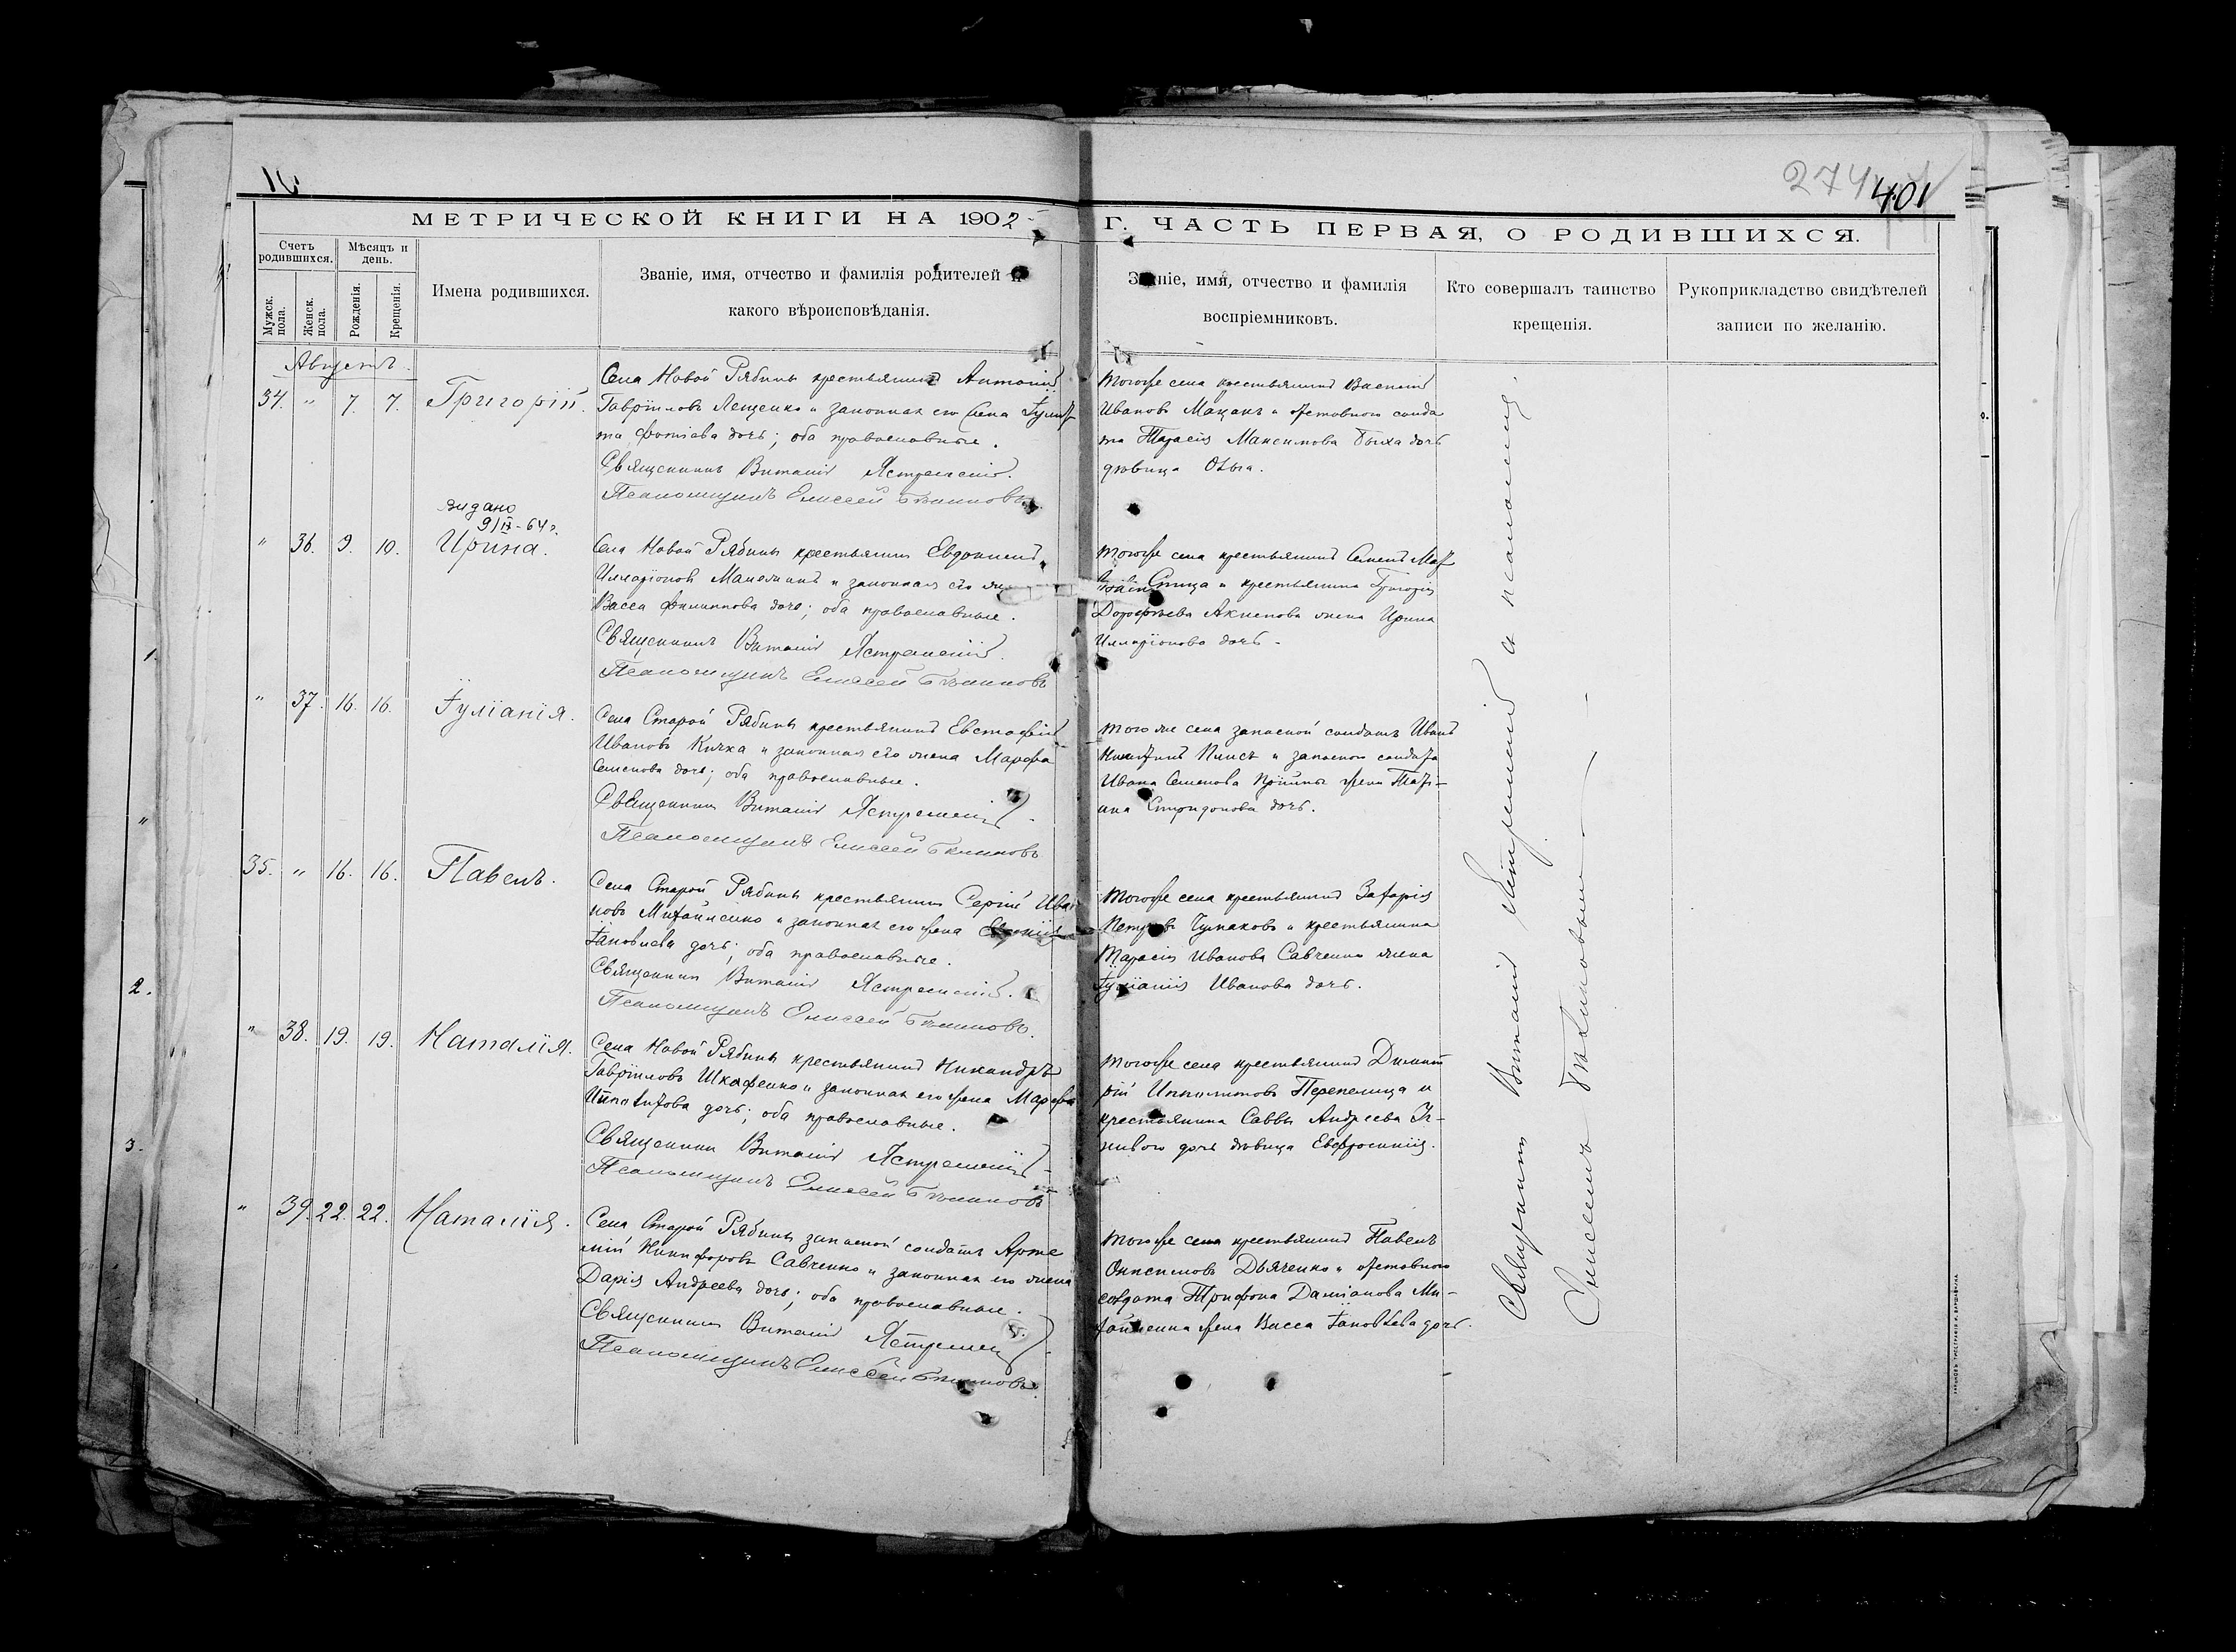 274
401
МЕТРИЧЕСКОЙ КНИГИ НА 1902
Г. ЧАСТЬ ПЕРВАЯ, О РОДИВШИХСЯ.
Счетъ родившихся.
Мѣсяцъ и день.
Мужск. пола.
Женск. пола.
Рожденія.
Крещенія.
Имена родившихся.
Званіе, имя, отчество и фамилія родителей и
какого вѣроисповѣданія.
Званіе, имя, отчество и фамилія
воспріемниковъ.
Кто совершалъ таинство
крещенія.
Рукоприкладство свидѣтелей
записи по желанію.
Августъ.
34. " 7. 7. Григорій.
Села Новой Рябины крестьянинъ Антоній
Гавріиловъ Лещенко и законная его жена Іулит
та Фотіева дочь; оба православные.
Священникъ Виталій Ястремскій.
Псаломщикъ Елисей
Тогоже села крестьянинъ Василій
Ивановъ Мацакъ и отставного солда
та Тарасія Максимова дочь
дѣвица Ольга.
видано
9/IX-64г.
" 36. 9. 10. Ирина.
Села Новой Рябины крестьянинъ Евдокимъ
Илларіоновъ и законная его жена
Васса Филиппова дочь; оба православные.
Священникъ Виталій Ястремскій.
Псаломщикъ Елисей
Тогоже села крестьянинъ Семенъ Мат
Спица и крестьянина Григорія
Дорофѣева Акименкова жена Ирина
Илларіонова дочь.
" 37. 16. 16. Іуліанія.
Села Старой Рябины крестьянинъ Евстафій
Ивановъ Кичка и законная его жена Марфа
Семенова дочь; оба православные.
Священникъ Виталій Ястремскій
Псаломщикъ Елисей
Тогоже села запасной солдатъ Иванъ
Никитинъ и запасного солдата
Ивана Семенова жена Тати-
ана Спиридонова дочь.
35. " 16. 16. Павелъ.
Села Старой Рябины крестьянинъ Сергій Ива
новъ Михайленко и законная его жена
Іаковлева дочь; оба православные.
Священникъ Виталій Ястремскій.
Псаломщикъ Елисей
Тогоже села крестьянинъ Захарій
Петровъ Чумаковъ и крестьянина
Тарасія Иванова Савченко жена
Іуліанія Иванова дочь.
" 38. 19. 19. Наталія.
Села Новой Рябины крестьянинъ Никандръ
Гавріиловъ Шкафенко и законная его жена Марфа
Ипполитова дочь; оба православные.
Священникъ Виталій Ястремскій
Псаломщикъ Елисей
Тогоже села крестьянинъ Димит
рій Ипполитовъ Перепелица и
крестьянина Саввы Андреева
дочь дѣвица Евфросинія.
" 39. 22. 22. Наталія.
Села Старой Рябины запасной солдатъ Арте
мій Никифоровъ Савченко и законная его жена
Дарія Андреева дочь; оба православные.
Священникъ Виталій Ястремскій
Псаломщикъ Елисей
Тогоже села крестьянинъ Павелъ
Онисимовъ Дьяченко и отставного
солдата Трифона Даміанова Ми-
хайленка жена Васса Іаковлева дочь.
Священникъ Виталій Ястремскій и псаломщикъ
1.
"
2.
3.